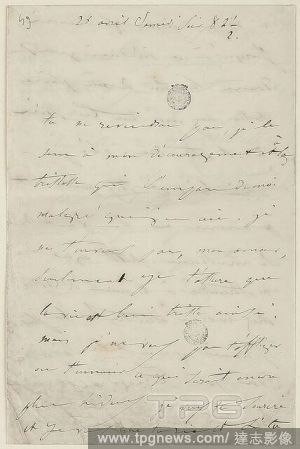 49
28 avril Samedi soir 8h 1/2.
tu ne reviendras pas, je le
sens à mon découragement et à la
tristesse qui s'empare de moi
malgré que j'en aie. je
ne t'en veux pas, mon amour,
seulement je t'assure que
la vie est bien triste ainsi.
mais je ne veux pas t'affliger
ou t'ennuyer ce qui serait encore
plus
et je
TPG
www.tpgnews.com/達志影像